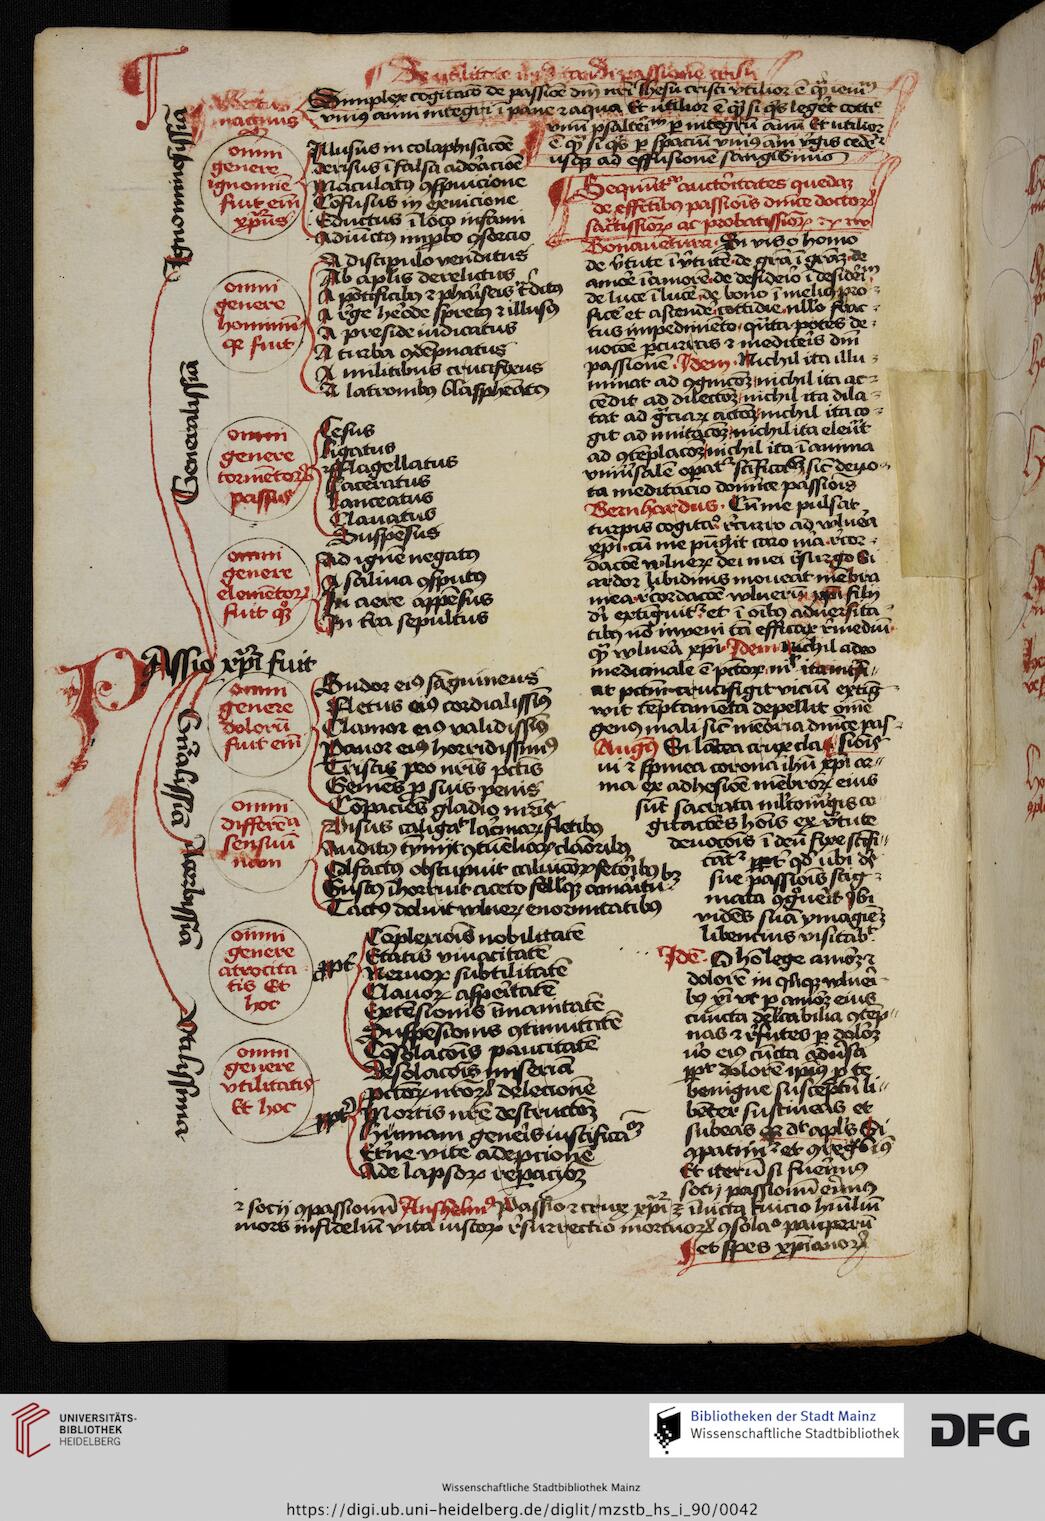 De utilitate meditandi passionem cristi
Albertus magnus
Simplex cogitatio de passione dni nri Ihesu cristi utilior e qm ieiunium
unius anni integri i pane et aqua Et utilior e qm si qs leget cottie
unu psalteriu p integru annu Et utilior
e qm si qs p spaciu unius anni virgis cederet
usqz ad effusione sanguinis
Ignominiosissima
omni
genere
ignominie
fuit enim
xpus
Illusus in colaphisacoe
derisus i falsa adoracioe
Maculatus conspuicione
Cofusus in exuicione
Eductus i loco infami
Adiuctus impio consorcio
Generalissima
omni
genere
hominum
qz fuit
A discipulo venditus
Ab aplis derelictus
A pontificibus et phariseis traditus
A rege herode spretus et illusus
A preside iudicatus
A turba condepnatus
A militibus crucifixus
A latronibus blasphematus
omni
genere
tormetorum
passus
Cesus
Ligatus
Flagellatus
Laceratus
Lanceatus
Clauatus
Suspensus
omni
genere
elemetorum
fuit
Ad igne negatus
A saliua consputus
In aere appensus
In tra sepultus
Passio xpi fuit
omni
genere
doloru
fuit eni
Sudor eius sanguineus
Fletus eius cordialissimus
Clamor eius validissimus
Pauor eius horridissimus
Tristis pro nris pctis
Gemes p suis penis
Copaciens gladio matris
Acerbissima
omni
differecia
sensuu
nam
Visus caligat lacrimarum fletibus
Auditus
Olfactus obstupuit
Gustus ihorruit aceto fellisqz amaritudine
Tactus doluit vulnerum enormitatibus
omni
genere
atrocita
tis Et
hoc
ppt
Coplexionis nobilitate
Etatis viuacitate
Neruorum subtilitate
Clauorum asperitate
Extensionis imanitate
Suspensionis continuitate
Cosolacois paucitate
desolacois miseria
Utilissima
omni
genere
utilitatis
Et hoc
ppt
pctorum nrorum delecionem
Mortis nre destructione
Humani generis iustificaconem
Etne vite adepcionem
Ade lapsorum repacionem
Sequunt auctoritates quedam
de effectibus passiois dnice doctorum
sactissiorum ac probatissiorum
Bonauetura Si vis o homo
de vtute i vtute de gra i gram de
amore i amore de desiderio i desiderium
de luce i luce de bono i melius pro
ficere et ascendere cottidie nullo frac
tus impedimeto quta potes de
uocoe pcurras et mediteris dni
passione Idem Nichil ita illu
minat ad cognicoem nichil ita ac
cedit ad dilectoem nichil ita dila
tat ad graru actoem nichil ita co
git ad imitacoem nichil ita eleuit
ad cotemplacoem nichil ita i anima
uniusale operat scificacoem sicut deuo
ta meditacio dominice passiois
Bernhardus Cum me pulsat
turpis cogitaco recurro ad vulnera
xpi cu me pugit caro mea recor
dacoe vulnerum dei mei resurgo Si
ardor libidinis moueat membra
mea recordacoe vulnerum xpi filii
di extinguit et i oibus aduersita
tibus no inueni ta efficax remedium
qm vulnera xpi Idem Nichil adeo
medicinale e pctori
crucifigit viciu
tepptameta depellit ome
genus mali sicut memoria dnice pas
siois
August Si latea crux cla
ui et spinea corona ihu xpi ar
ma ex adhesioe mebrorum eius
sut sacrata multomagis co
gitacoes hois ex vtute
deuocois i deu fixe scifi
cat ppt qd ubi de
sue passiois stig
mata cognouerit Ibi
videns sua ymagine
libencius visitabit
Ide O ho lege amore et
dolore in quinqz vulneri
bus xi vt p amore eius
cuncta delctabilia cotep
nas et refutes p dolore
vo eius cucta adusa
ppt dolore ipius p te
benigne susceptu li
beter sustineas et
subeas qz dt apls Si
compatimur et conregnabimus
Et iteru si fuerimus
socii passionu erimus
et socii passionum Anshelmus Passio et crux xpi inuicta
mors infideliu vita iustorum resurrectio mortuorum consolaco pauperu
et spes xpianorum
UNIVERSITÄTS-
BIBLIOTHEK
HEIDELBERG
Bibliotheken der Stadt Mainz
Wissenschaftliche Stadtbibliothek
DFG
Wissenschaftliche Stadtbibliothek Mainz
https://digi.ub.uni-heidelberg.de/diglit/mzstb_hs_i_90/0042